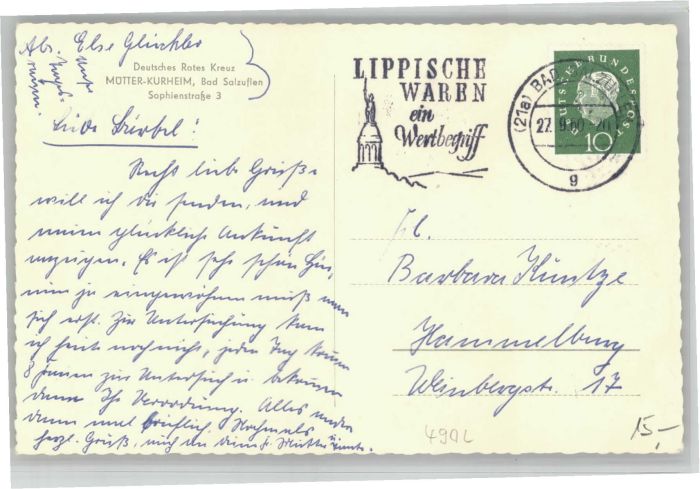 Abs. Else
Deutsches Rotes Kreuz
MÜTTER-KURHEIM, Bad Salzuflen
Sophienstraße 3
Liebe Bärbel!
Recht liebe Grüße
will ich dir senden, und
meine glückliche Ankunft
anzeigen. Es ist sehr schön hier,
nur ja eingewöhnen muß man
sich erst. Zur Untersuchung kam
ich heute noch nicht, jeden Tag kommen
8 Frauen zur Untersuch. u. bekommen
dann Ihre Verordnung. Alles andere
dann mal brieflich. Nochmals
herzl. Grüße, auch an deine
LIPPISCHE
WAREN
ein
Wertbegriff
(21a) BAD SALZUFLEN
27.9.60
g
DEUTSCHE BUNDESPOST
10
Frl.
Barbara Kuntze
Hammelburg
Weinbergstr. 17
490L
15,-